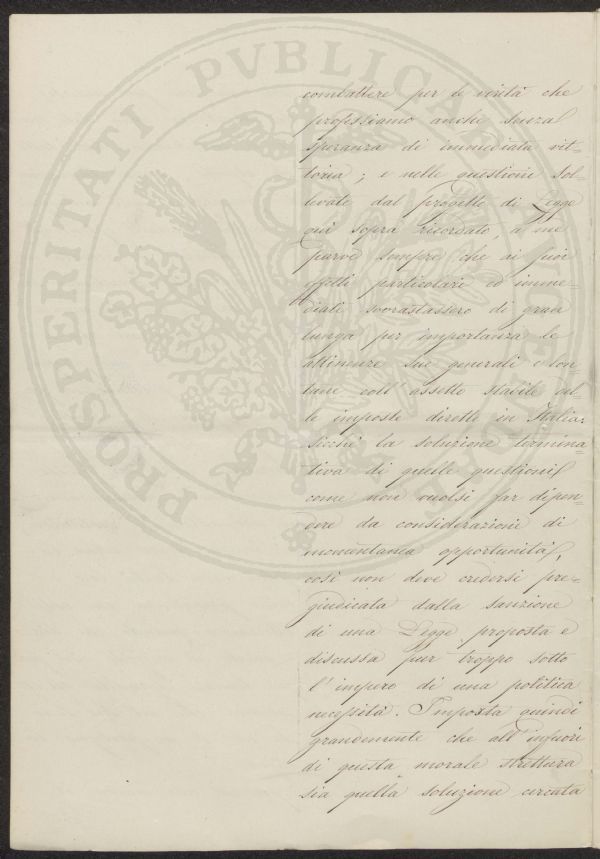 PROSPERITATI PVBLICAE AVGENDAE
combattere per le verità che
professiamo anche senza
speranza di immediata vit=
toria; e nelle questioni sol=
levate dal progetto di Legge
quì sopra ricordato, a me
parve sempre che ai suoi
effetti particolari ed imme=
diati sovrastassero di gran
lunga per importanza le
attinenze sue generali e lon=
tane coll' assetto stabile del=
le imposte dirette in Italia:
sicchè la soluzione termina=
tiva di quelle questioni
come non vuolsi far dipen=
dere da considerazioni di
momentanea opportunità,
così non deve credersi pre=
giudicata dalla sanzione
di una Legge proposta e
discussa pur troppo sotto
l'impero di una politica
necessità. Importa quindi
grandemente che all'infuori
di questa morale strettura
sia quella soluzione cercata